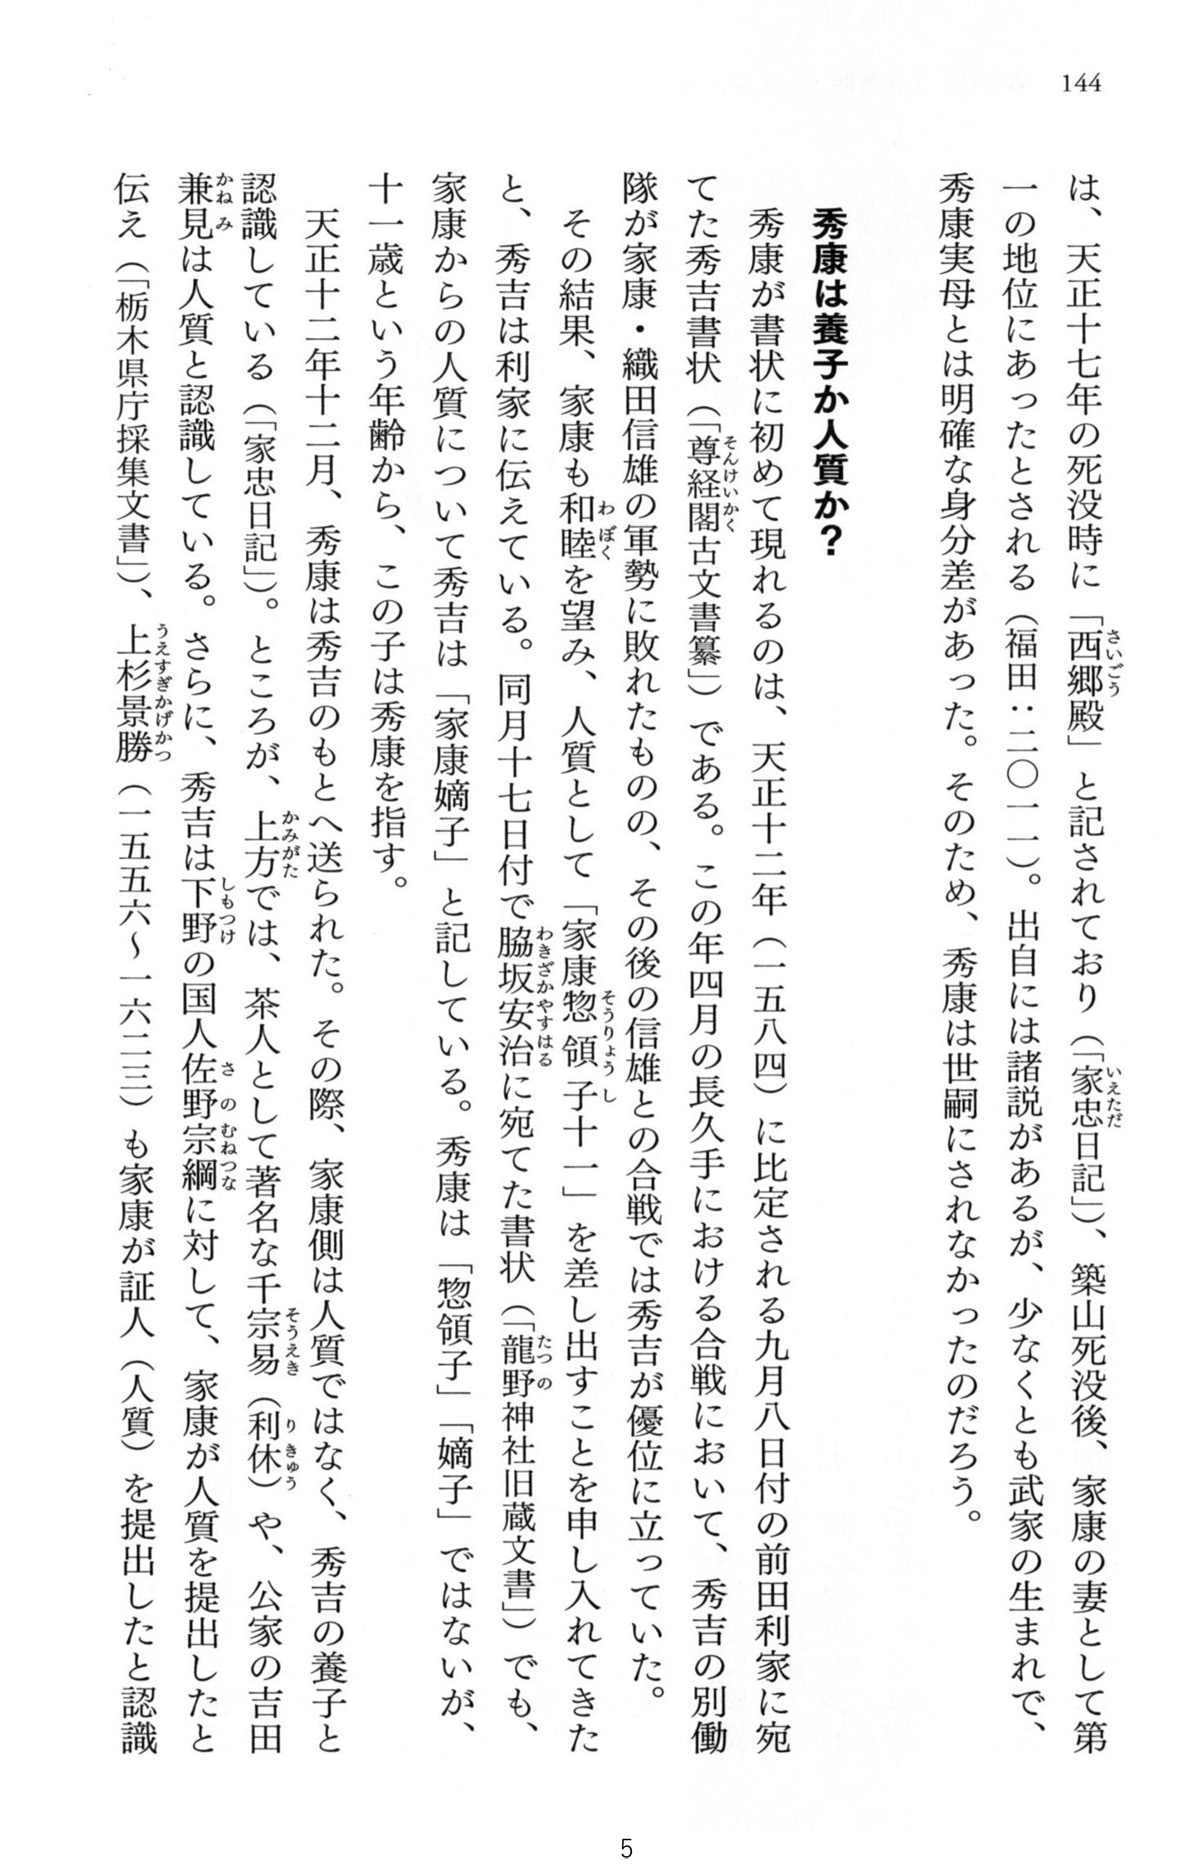 144
は、天正十七年の死没時に「西郷殿」と記されており（「家忠日記」）、築山死没後、家康の妻として第
一の地位にあったとされる（福田：二〇一一）。出自には諸説があるが、少なくとも武家の生まれで、
秀康実母とは明確な身分差があった。そのため、秀康は世嗣にされなかったのだろう。
秀康は養子か人質か？
秀康が書状に初めて現れるのは、天正十二年（一五八四）に比定される九月八日付の前田利家に宛
てた秀吉書状（「尊経閣古文書纂」）である。この年四月の長久手における合戦において、秀吉の別働
隊が家康・織田信雄の軍勢に敗れたものの、その後の信雄との合戦では秀吉が優位に立っていた。
その結果、家康も和睦を望み、人質として「家康惣領子十一」を差し出すことを申し入れてきた
と、秀吉は利家に伝えている。同月十七日付で脇坂安治に宛てた書状（「龍野神社旧蔵文書」）でも、
家康からの人質について秀吉は「家康嫡子」と記している。秀康は「惣領子」「嫡子」ではないが、
十一歳という年齢から、この子は秀康を指す。
天正十二年十二月、秀康は秀吉のもとへ送られた。その際、家康側は人質ではなく、秀吉の養子と
認識している（「家忠日記」）。ところが、上方では、茶人として著名な千宗易（利休）や、公家の吉田
兼見は人質と認識している。さらに、秀吉は下野の国人佐野宗綱に対して、家康が人質を提出したと
伝え（「栃木県庁採集文書」）、上杉景勝（一五五六～一六二三）も家康が証人（人質）を提出したと認識
5